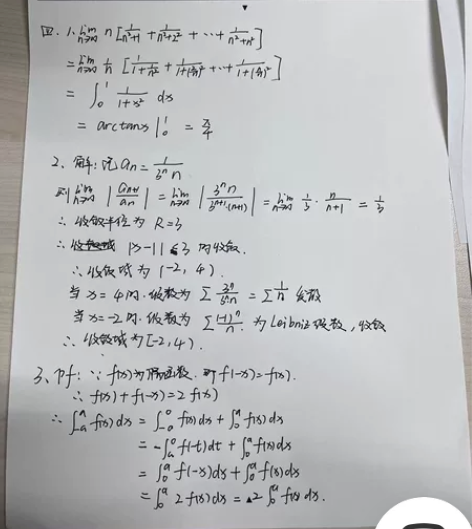 四. 1. lim n→∞ n[1/(n²+1) + 1/(n²+2²) + ... + 1/(n²+n²)]
= lim n→∞ 1/n [1/(1+1/n²) + 1/(1+(2/n)²) + ... + 1/(1+(n/n)²)]
= ∫₀¹ 1/(1+x²) dx
= arctanx |₀¹ = π/4
2. 解: 记 aₙ = 1/(3ⁿ n)
则 lim n→∞ |aₙ₊₁/aₙ| = lim n→∞ |3ⁿ n/(3ⁿ⁺¹·(n+1))| = lim n→∞ 1/3 · n/(n+1) = 1/3
∴ 收敛半径为 R=3
∴ |x-1|<3 时收敛.
∴ 收敛域为 (-2, 4).
当 x=4时. 级数为 Σ 3ⁿ/(3ⁿn) = Σ 1/n 发散
当 x=-2时. 级数为 Σ (-1)ⁿ/n. 为Leibniz级数, 收敛
∴ 收敛域为[-2,4).
3、pf: ∵ f(x)为偶函数. 即f(-x)=f(x).
∴ f(x)+f(-x)=2f(x)
∴ ∫₋ₐᵃ f(x)dx = ∫₋ₐ⁰ f(x)dx + ∫₀ᵃ f(x)dx
= -∫ₐ⁰ f(-t)dt + ∫₀ᵃ f(x)dx
= ∫₀ᵃ f(-x)dx + ∫₀ᵃ f(x)dx
= ∫₀ᵃ 2f(x)dx = 2∫₀ᵃ f(x)dx.